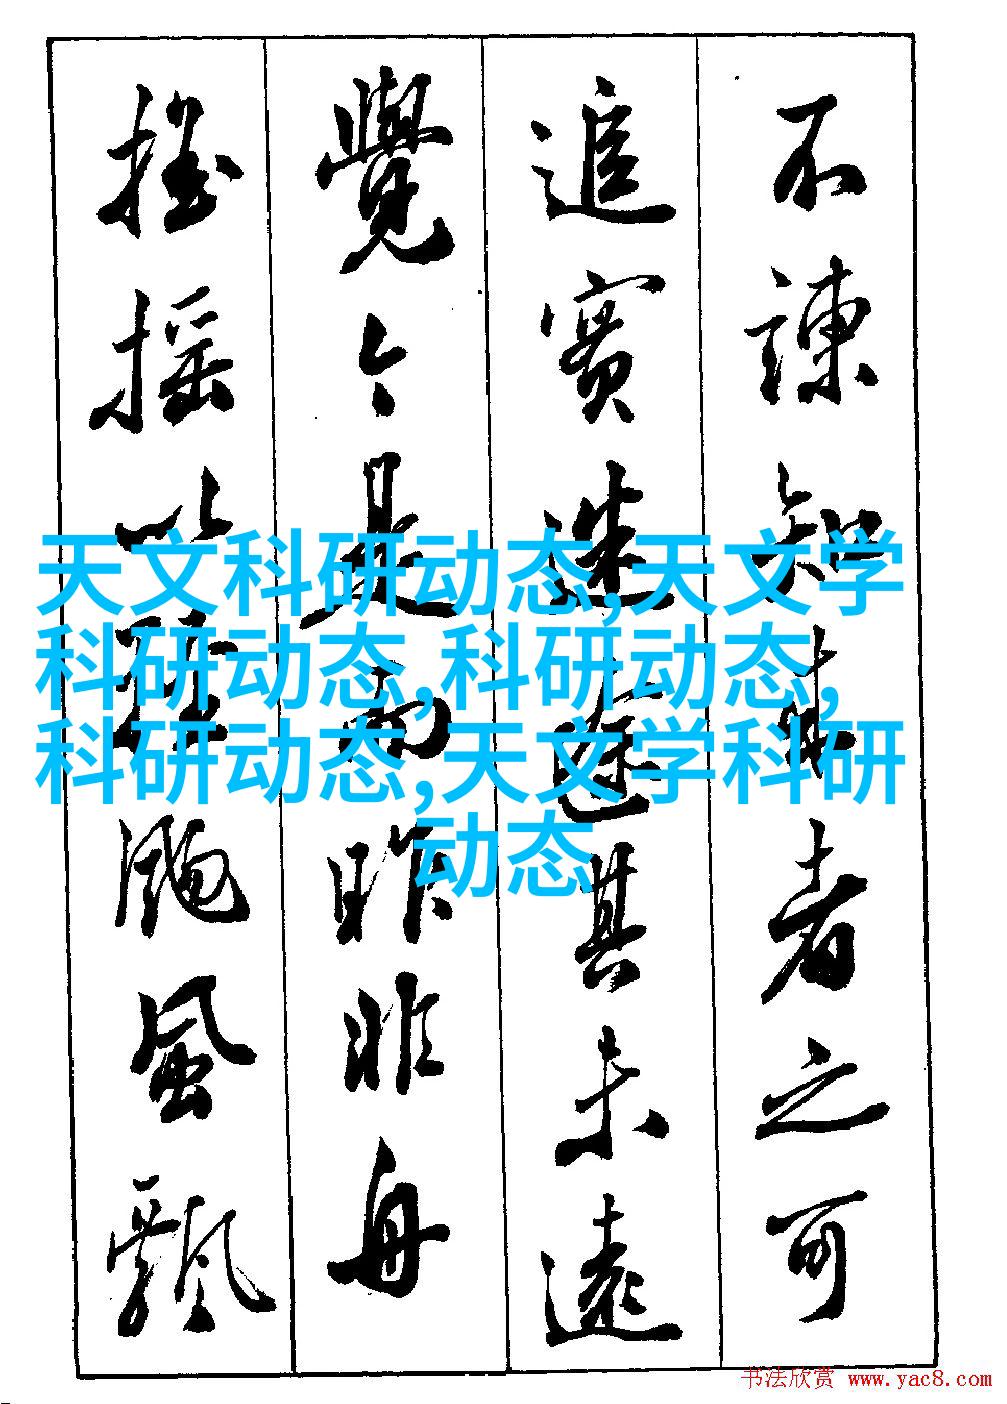 不諫知来者之可
追實迷途其未遠
覺今是而昨非舟
搖搖以輕颺風飄
天文科研动态,天文学
科研动态,科研动态,
科研动态,天文学科研
动态
书法欣赏 www.yac8.com